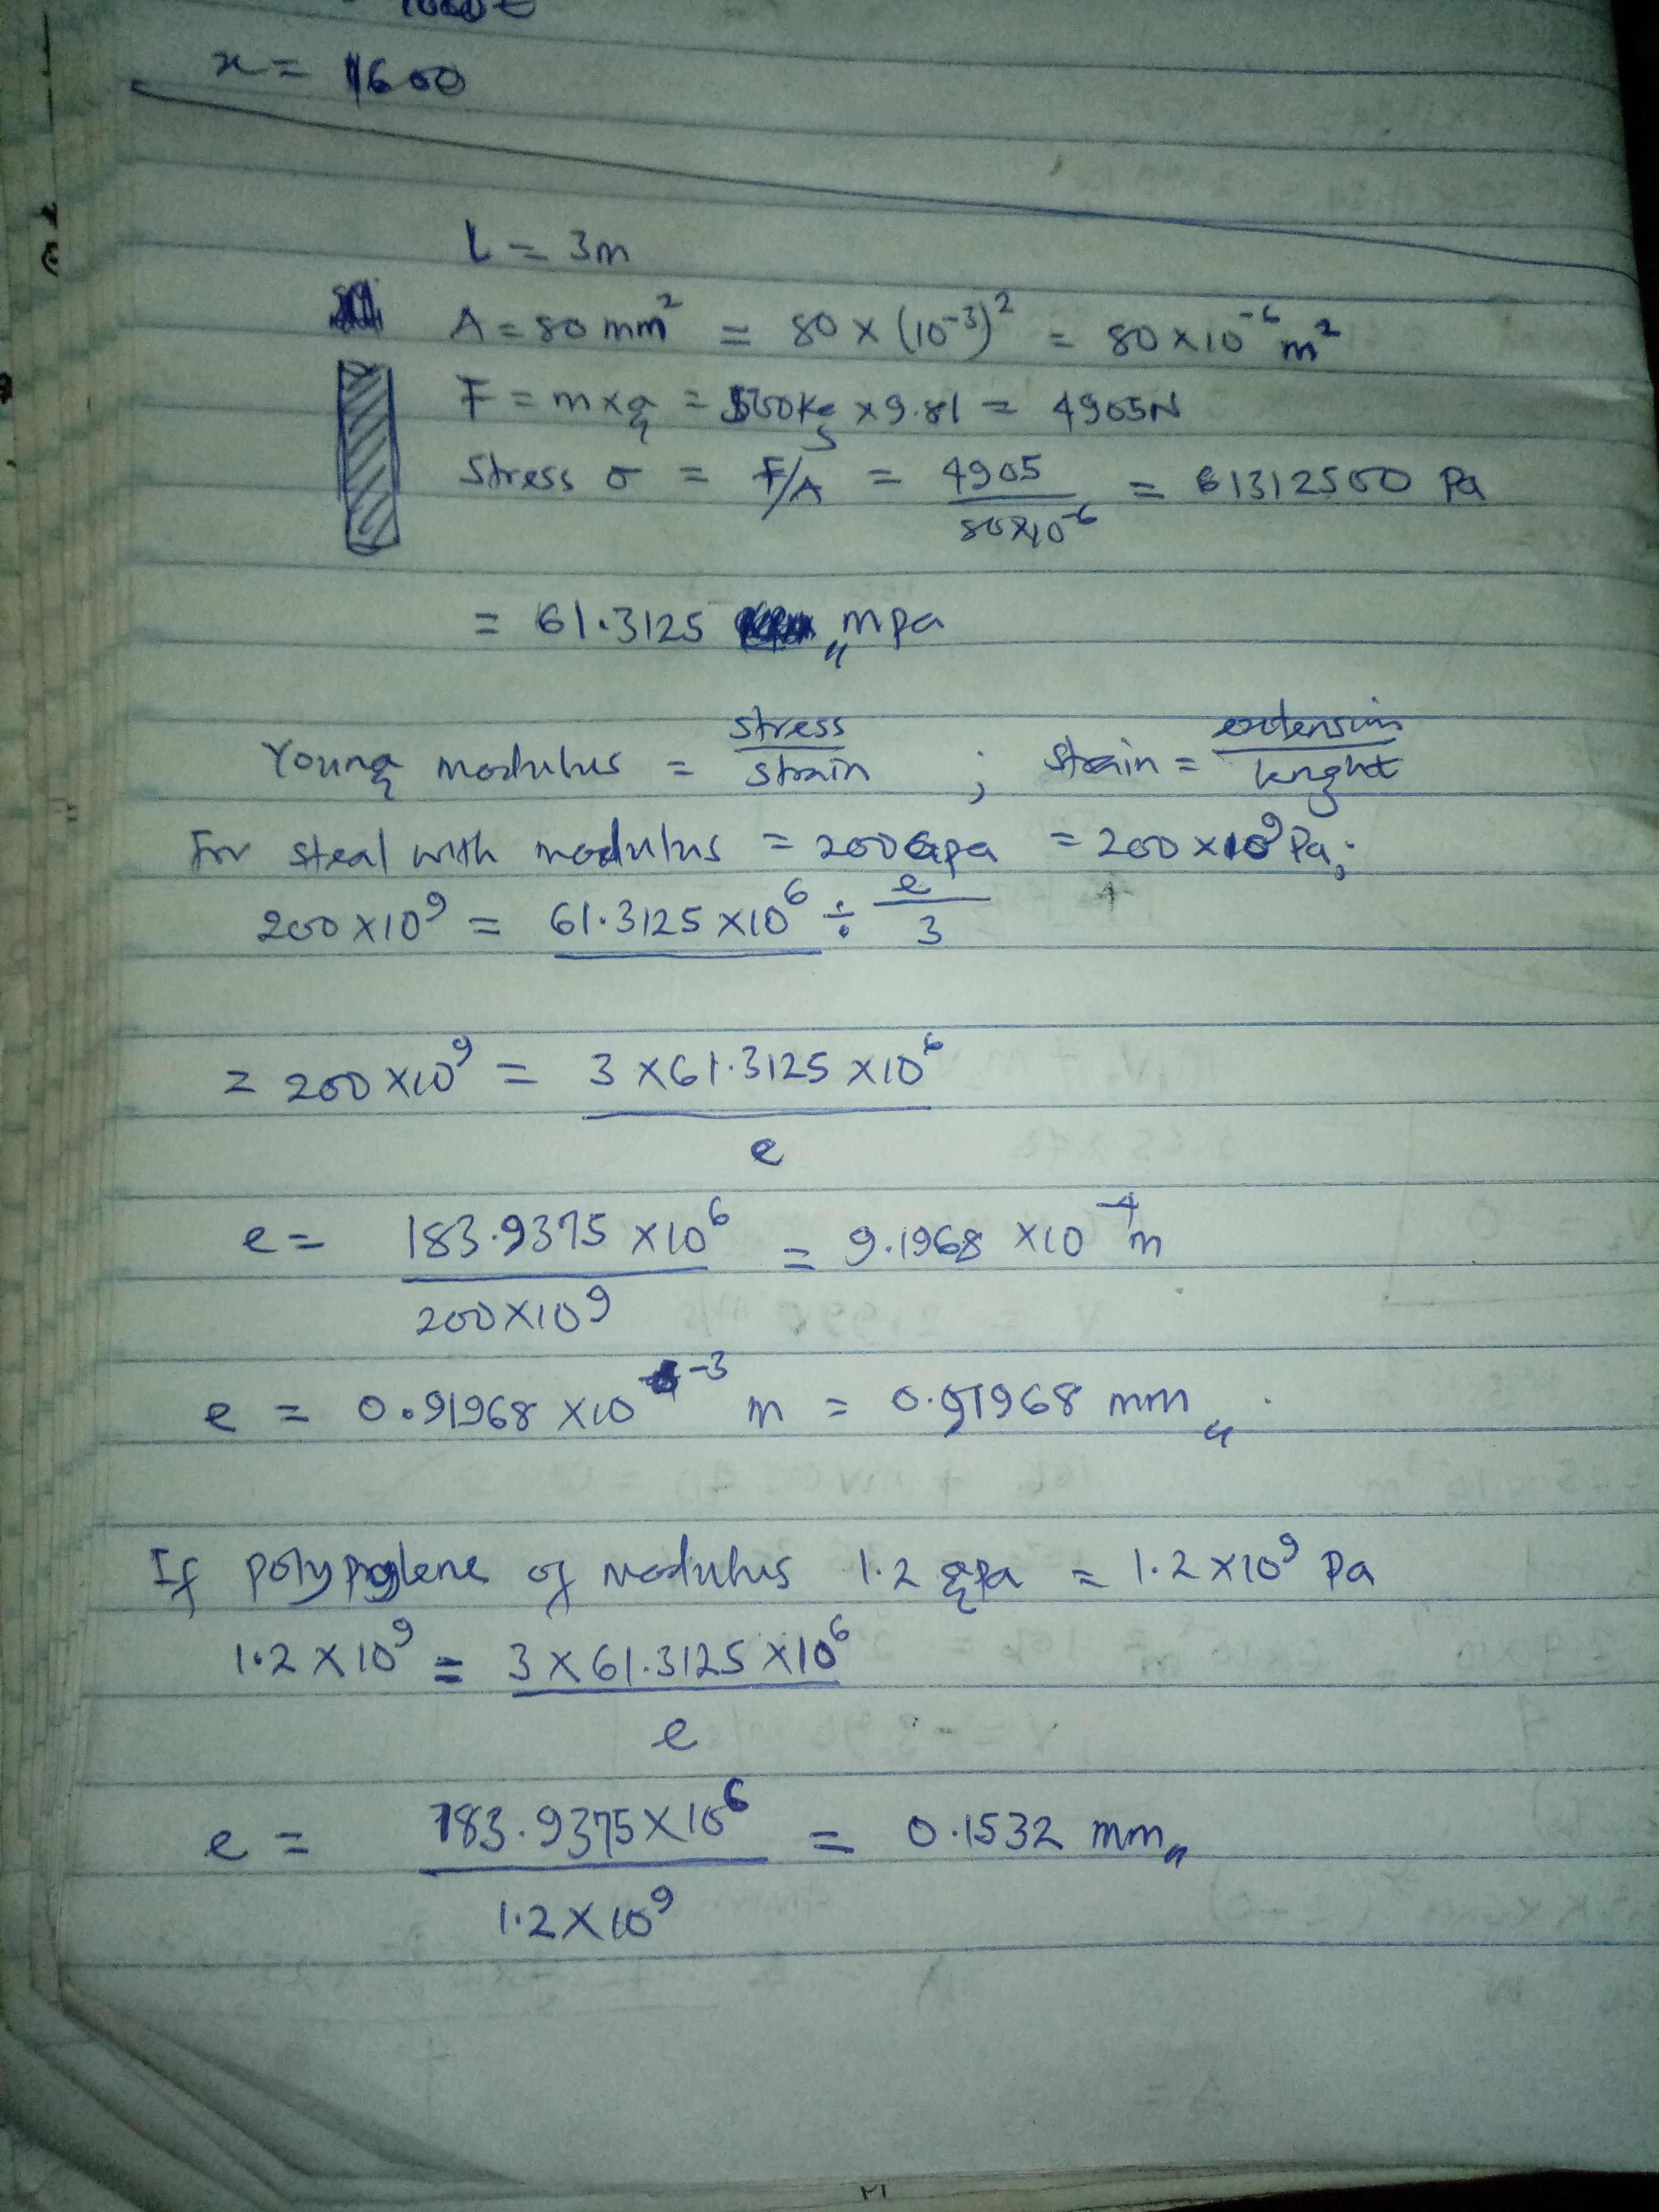 x = 1600
L = 3m
A = 80 mm² = 80 × (10⁻³)² = 80 × 10⁻⁶ m²
F = m × g = 500Kg × 9.81 = 4905N
Stress σ = F/A = 4905 / 80×10⁻⁶ = 61312500 Pa
= 61.3125 mpa
Young modulus = stress / strain ; strain = extension / lenght
For steal with modulus = 200Gpa = 200 × 10⁹ Pa;
200 × 10⁹ = 61.3125 × 10⁶ ÷ e / 3
= 200 × 10⁹ = 3 × 61.3125 × 10⁶ / e
e = 183.9375 × 10⁶ / 200 × 10⁹ = 9.1968 × 10⁻⁴ m
e = 0.91968 × 10⁻³ m = 0.91968 mm
If polypropylene of modulus 1.2 gpa = 1.2 × 10⁹ Pa
1.2 × 10⁹ = 3 × 61.3125 × 10⁶ / e
e = 183.9375 × 10⁶ / 1.2 × 10⁹ = 0.1532 mm